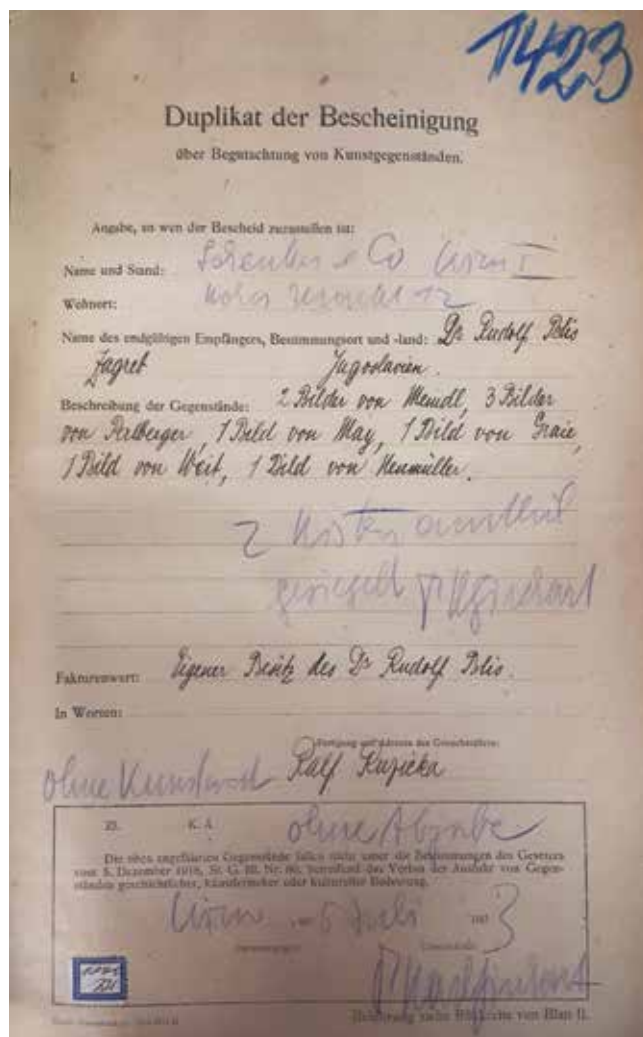 1423
1.
Duplikat der Bescheinigung
über Begutachtung von Kunstgegenständen.
Angabe, an wen der Bescheid zuzustellen ist:
Name und Stand: Schenker & Co Wien I
Wohnort: 12
Name des endgültigen Empfängers, Bestimmungsort und -land: Dr Rudolf Blis
Zagreb Jugoslavien.
Beschreibung der Gegenstände: 2 Bilder von Mendl, 3 Bilder
von Perlberger, 1 Bild von May, 1 Bild von
1 Bild von Weit, 1 Bild von Neumüller.
2 Kisten amtlich
gesiegelt
Fakturenwert: Eigener Besitz des Dr Rudolf Blis.
In Worten:
Fertigung und Adresse des Gesuchstellers:
Ralf Ruzicka
ohne
Zl. K. A. ohne Abgabe
Die oben angeführten Gegenstände fallen nicht unter die Bestimmungen des Gesetzes
vom 5. Dezember 1918, St. G. Bl. Nr. 90, betreffend das Verbot der Ausfuhr von Gegen-
ständen geschichtlicher, künstlerischer oder kultureller Bedeutung.
Wien 5 Juli 193 3
Belehrung siehe Rückseite von Blatt II.